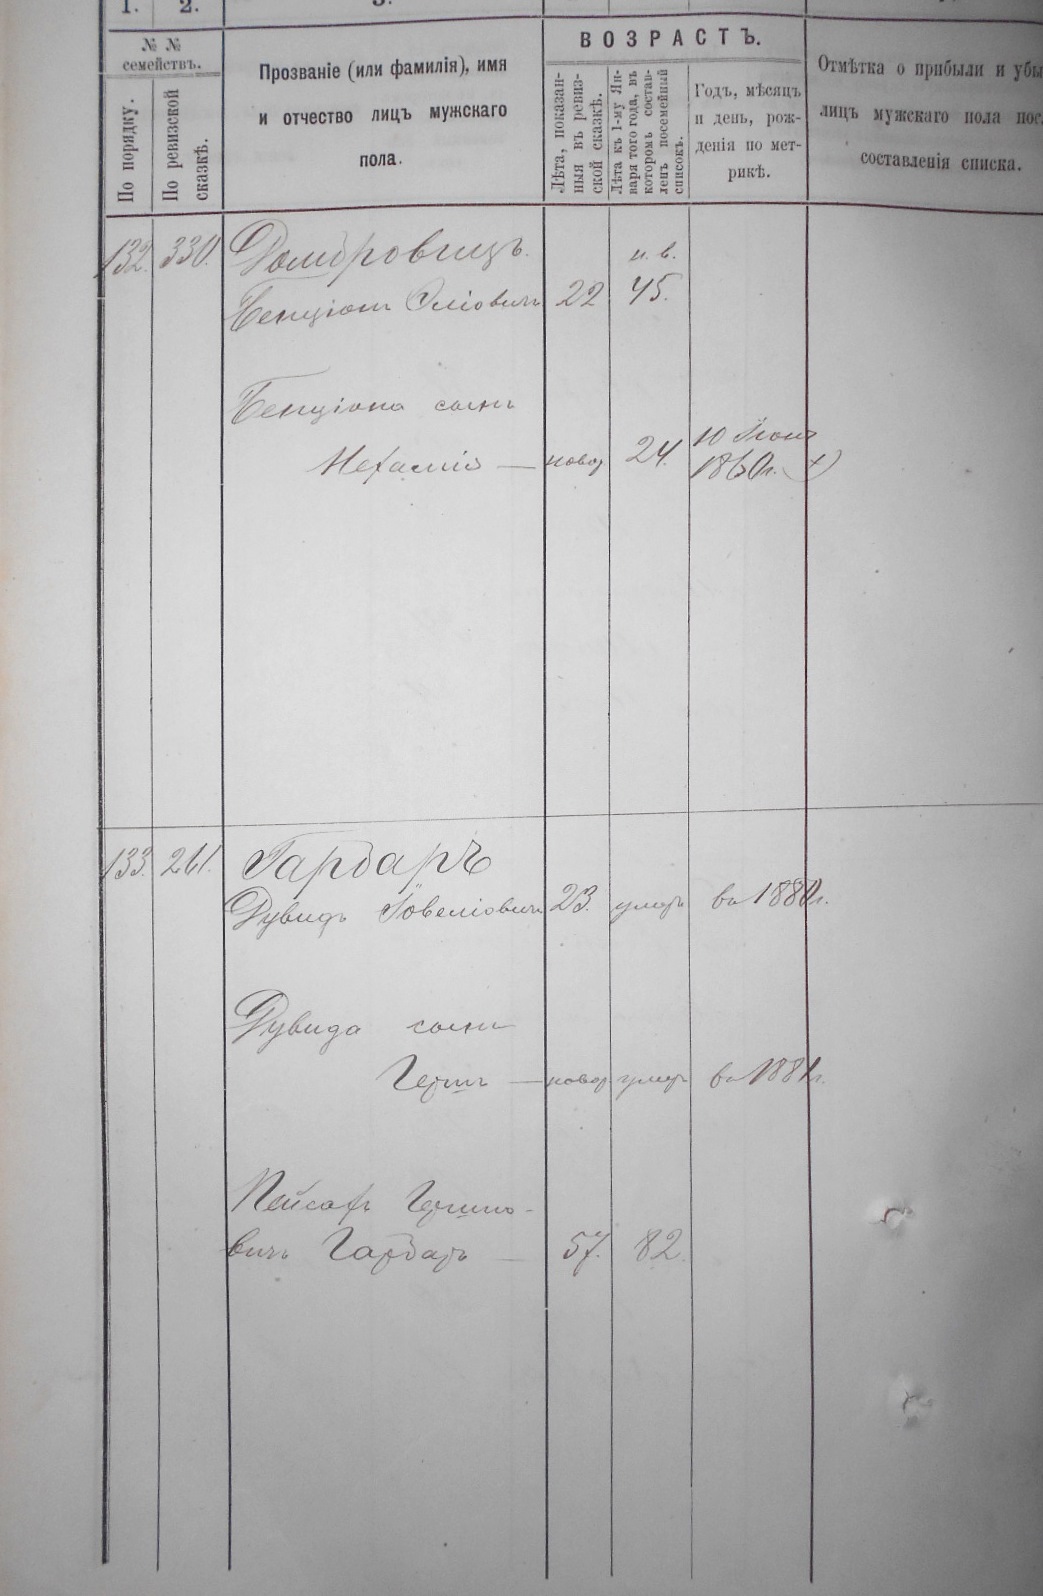 1. 2. 3.
№ №
семействъ.
По порядку.
По ревизской
сказкѣ.
Прозваніе (или фамилія), имя
и отчество лицъ мужскаго
пола.
ВОЗРАСТЪ.
Лѣта, показан-
ныя въ ревиз-
ской сказкѣ.
Лѣта къ 1-му Ян-
варя того года, въ
которомъ состав-
ленъ посемейный
списокъ.
Годъ, мѣсяцъ
и день, рож-
денія по мет-
рикѣ.
Отмѣтка о прибыли и убы
лицъ мужскаго пола пос
составленія списка.
132. 330. Домбровицъ. н. в.
Бенціонъ Эліовичъ 22 45.
Бенціона сынъ
Нехамія — новор 24. 10 Іюня
1860 г.
133. 261. Гарбаръ
Дувидъ Іовеліовичъ 23. умеръ въ 1880 г.
Дувида сынъ
Гершъ — новор умеръ въ 1881 г.
Пейсахъ Гершо-
вичъ Гарбаръ — 57. 82.